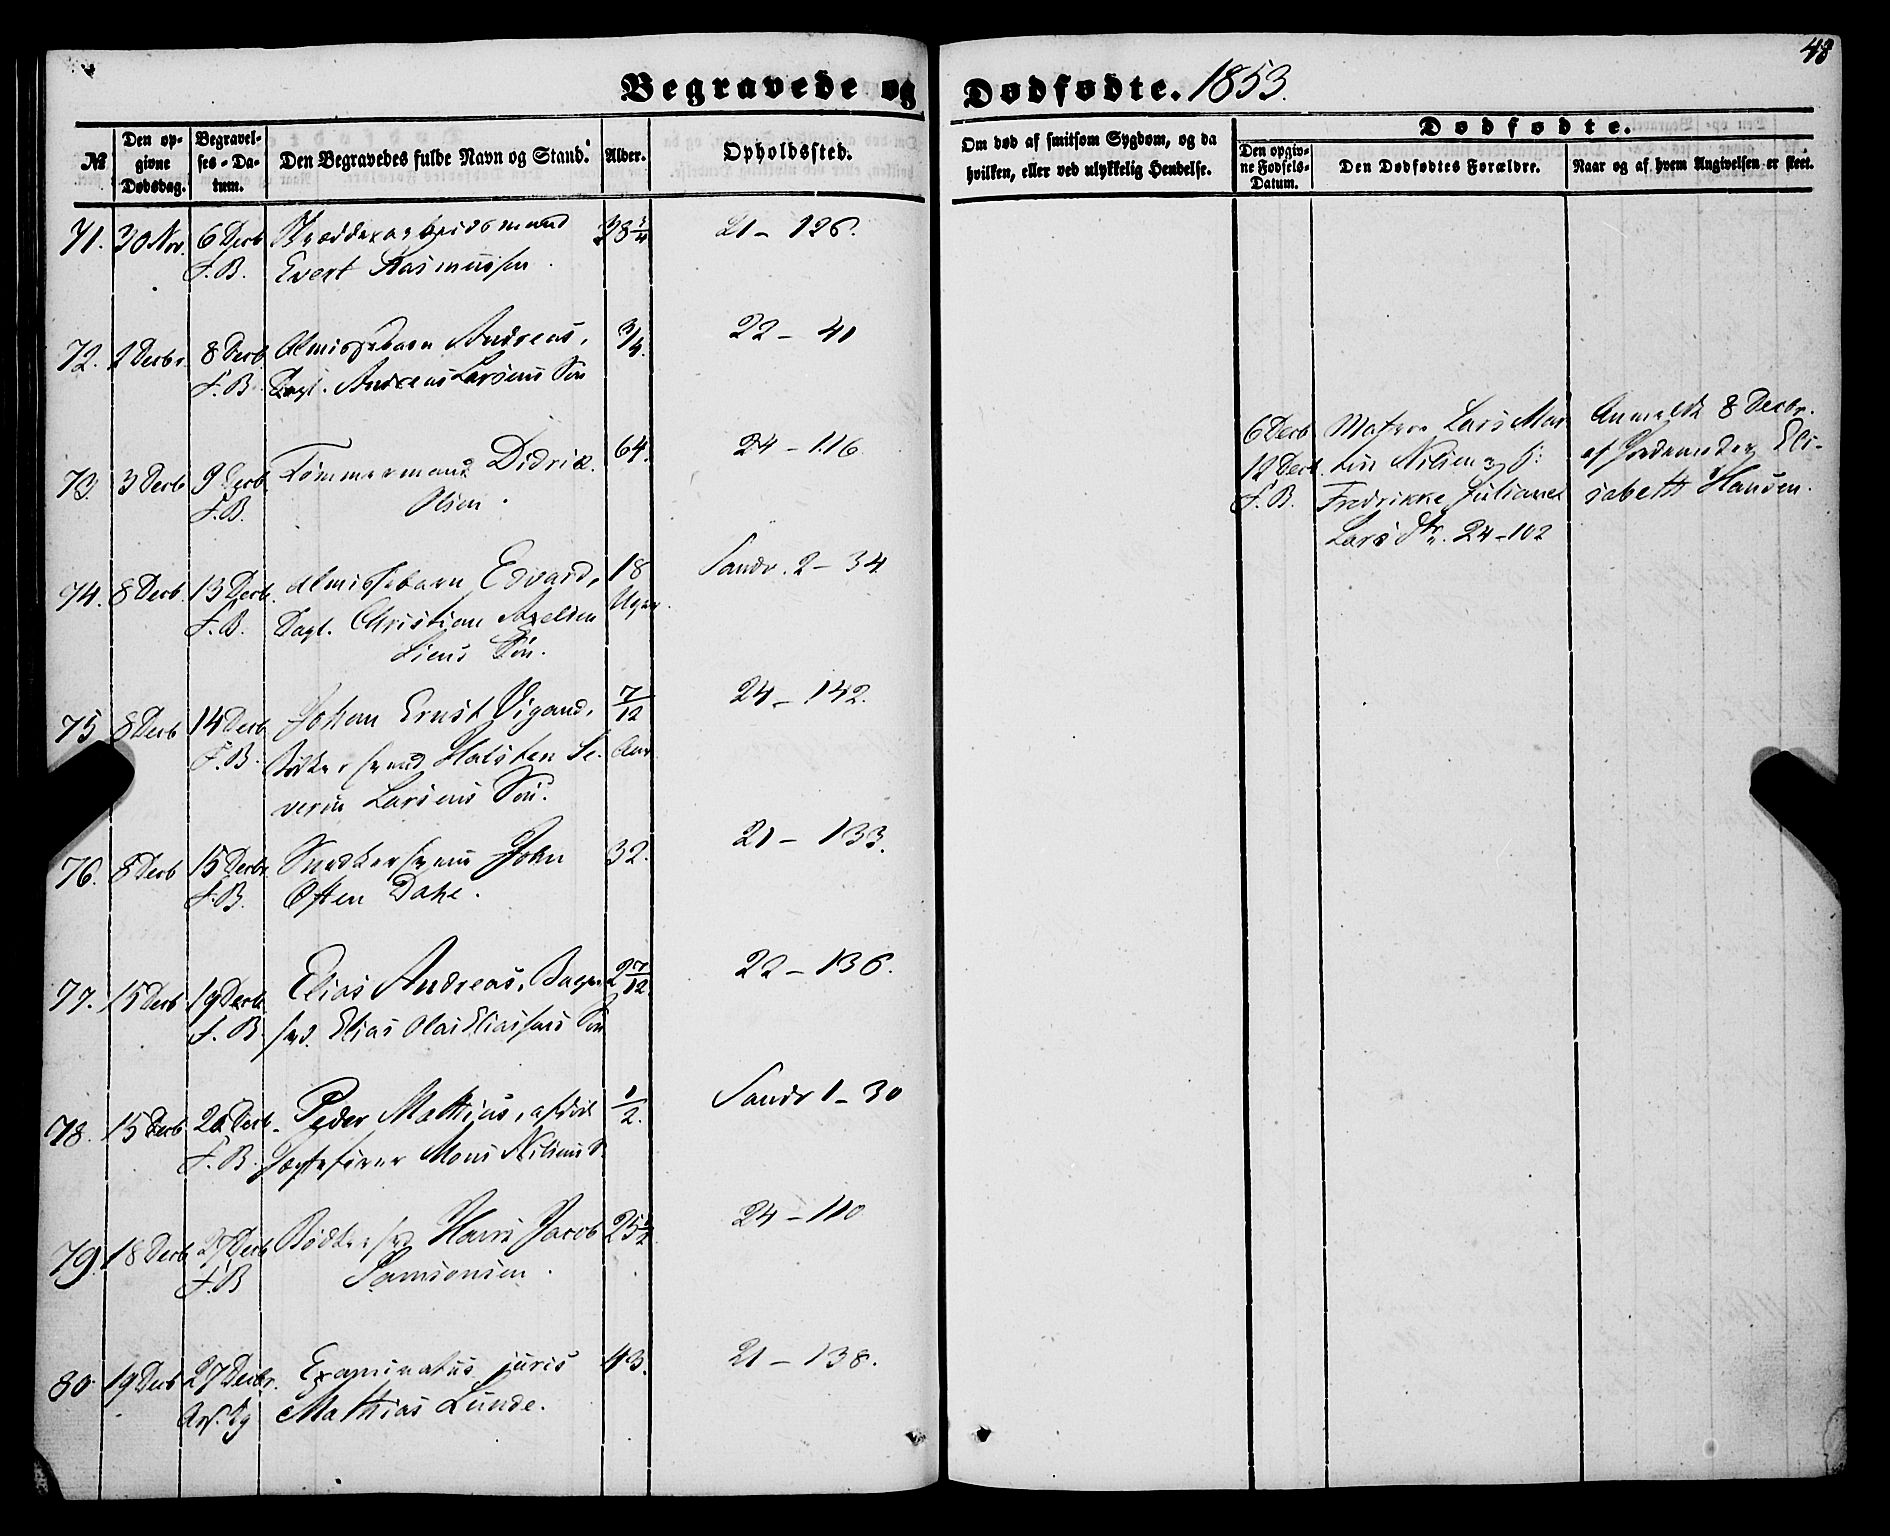 48
Begravede og Dødfødte. 1853.
№
Den opgivne Dødsdag.
Begravelses-Datum.
Den Begravedes fulde Navn og Stand.
Alder.
Opholdssted.
Om død af smitsom Sygdom, og da hvilken, eller ved ulykkelig Hendelse.
Dødfødte.
Den opgivne Fødsels-Datum.
Den Dødfødtes Forældre.
Naar og af hvem Angivelsen er skeet.
71. 30 Nov. 6 Decb 38 3/4 21 - 126.
F. B. Evert Rasmussen.
72. 2 Decbr. 8 Decb Almissebarn Andreas, 3/4. 22 - 41
F. B. Dagl. Andreas Larsens Søn
73. 3 Decb 9 Decb. Tømmermand Didrik 64. 24 - 116
F. B. Olsen.
6 Decb Matros Lars Mar Anmeldt 8 Decbr.
12 Decb tin Nilsen og af Jordemoder Eli-
F. B. Fredrikke Juliane sabeth Hansen.
Larsdtr. 24-102
74. 8 Decb. 13 Decb. Almissebarn Edvard, 18 Sandv. 2 - 34
F. B. Dagl. Christian Axelsen Uger.
Liens Søn.
75 8 Decb 14 Decb Johan Ernst Vigand, 7/12 24 - 142.
F. B. Bødkersvend Halsten Se- Aar
verin Larsens Søn.
76. 8 Decb 15 Decbr. Snedkersvend John 32. 21 - 133.
F. B. Osten Dahl.
77. 15 Decb 19 Decb. Elias Andreas, Bager 2 7/12. 22 - 136.
F. B. svd. Elias Olai Eliassens Søn
78. 15 Decb 20 Decb. Peder Mathias, afdød 1/2. Sandv 1 - 30
F. B. Jægtefører Mons Nilsens S.
79. 18 Decb 27 Decb Bødkersvd Hans Jacob 25 24 - 110
F. B Samsonsen.
80. 19 Decb 27 Decbr. Examinatus juris 43. 21 - 138.
Mathias Lunde.